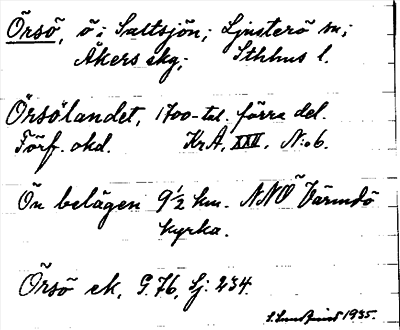 Örsö, ö i Saltsjön; Ljusterö sn;
Åkers skg; Sthlms l.
Örsölandet, 1700-tal. förra del.
Förf. okd. KrA, XXII, N:o 6.
Ön belägen 9 1/2 km. NNO Värmdö
kyrka.
Örsö ek, G. 76, Sj: 234.
1935.